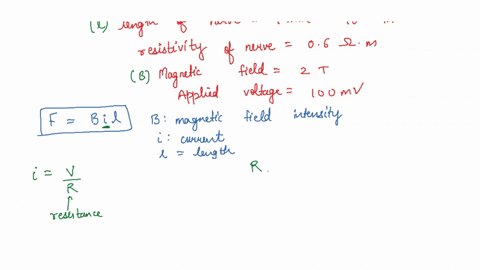 (l) length of nerve
resistivity of nerve = 0.6 Ω.m
(B) Magnetic field = 2 T
Applied voltage = 100 mV
F = Bil
B: magnetic field intensity
i: current
l = length
i = V/R
R
resistance